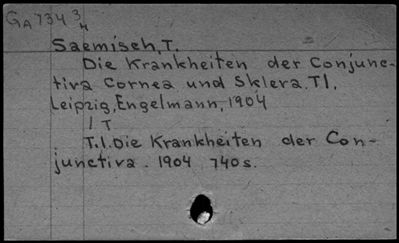 GA 734 3/4
Saemisch, T.
Die Krankheiten der Conjunc-
tiva Cornea und Sklera. T1.
Leipzig, Engelmann, 1904
1 T
T.1. Die Krankheiten der Con-
junctiva. 1904 740 s.